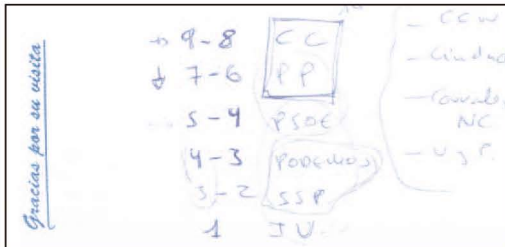 Gracias por su visita
9-8 CC
7-6 PP
5-4 PSOE
4-3 PODEMOS
3-2 SSP
1 IU
- CCN
- Ciudad
NC
- U y P.